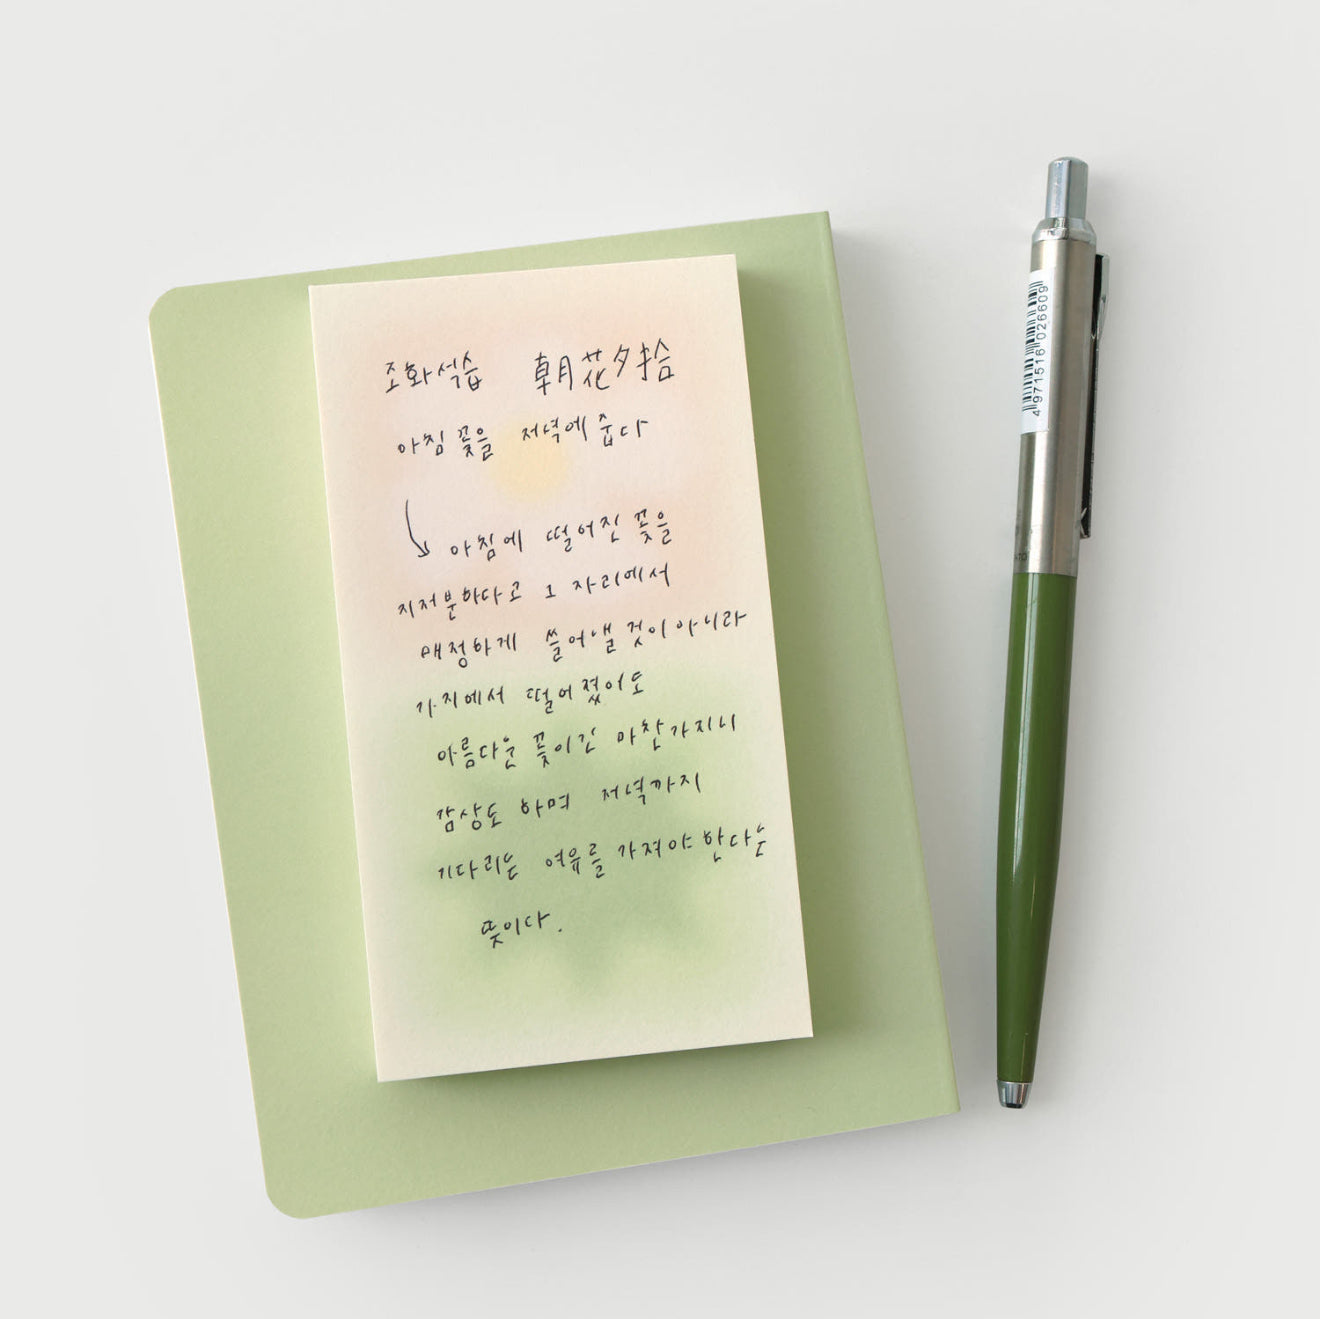 조화석습 朝花夕拾
아침 꽃을 저녁에 줍다
아침에 떨어진 꽃을
지저분하다고 그 자리에서
매정하게 쓸어낼 것이 아니라
가지에서 떨어졌어도
아름다운 꽃이긴 마찬가지니
감상도 하며 저녁까지
기다리는 여유를 가져야 한다는
뜻이다.
4 971516 026609